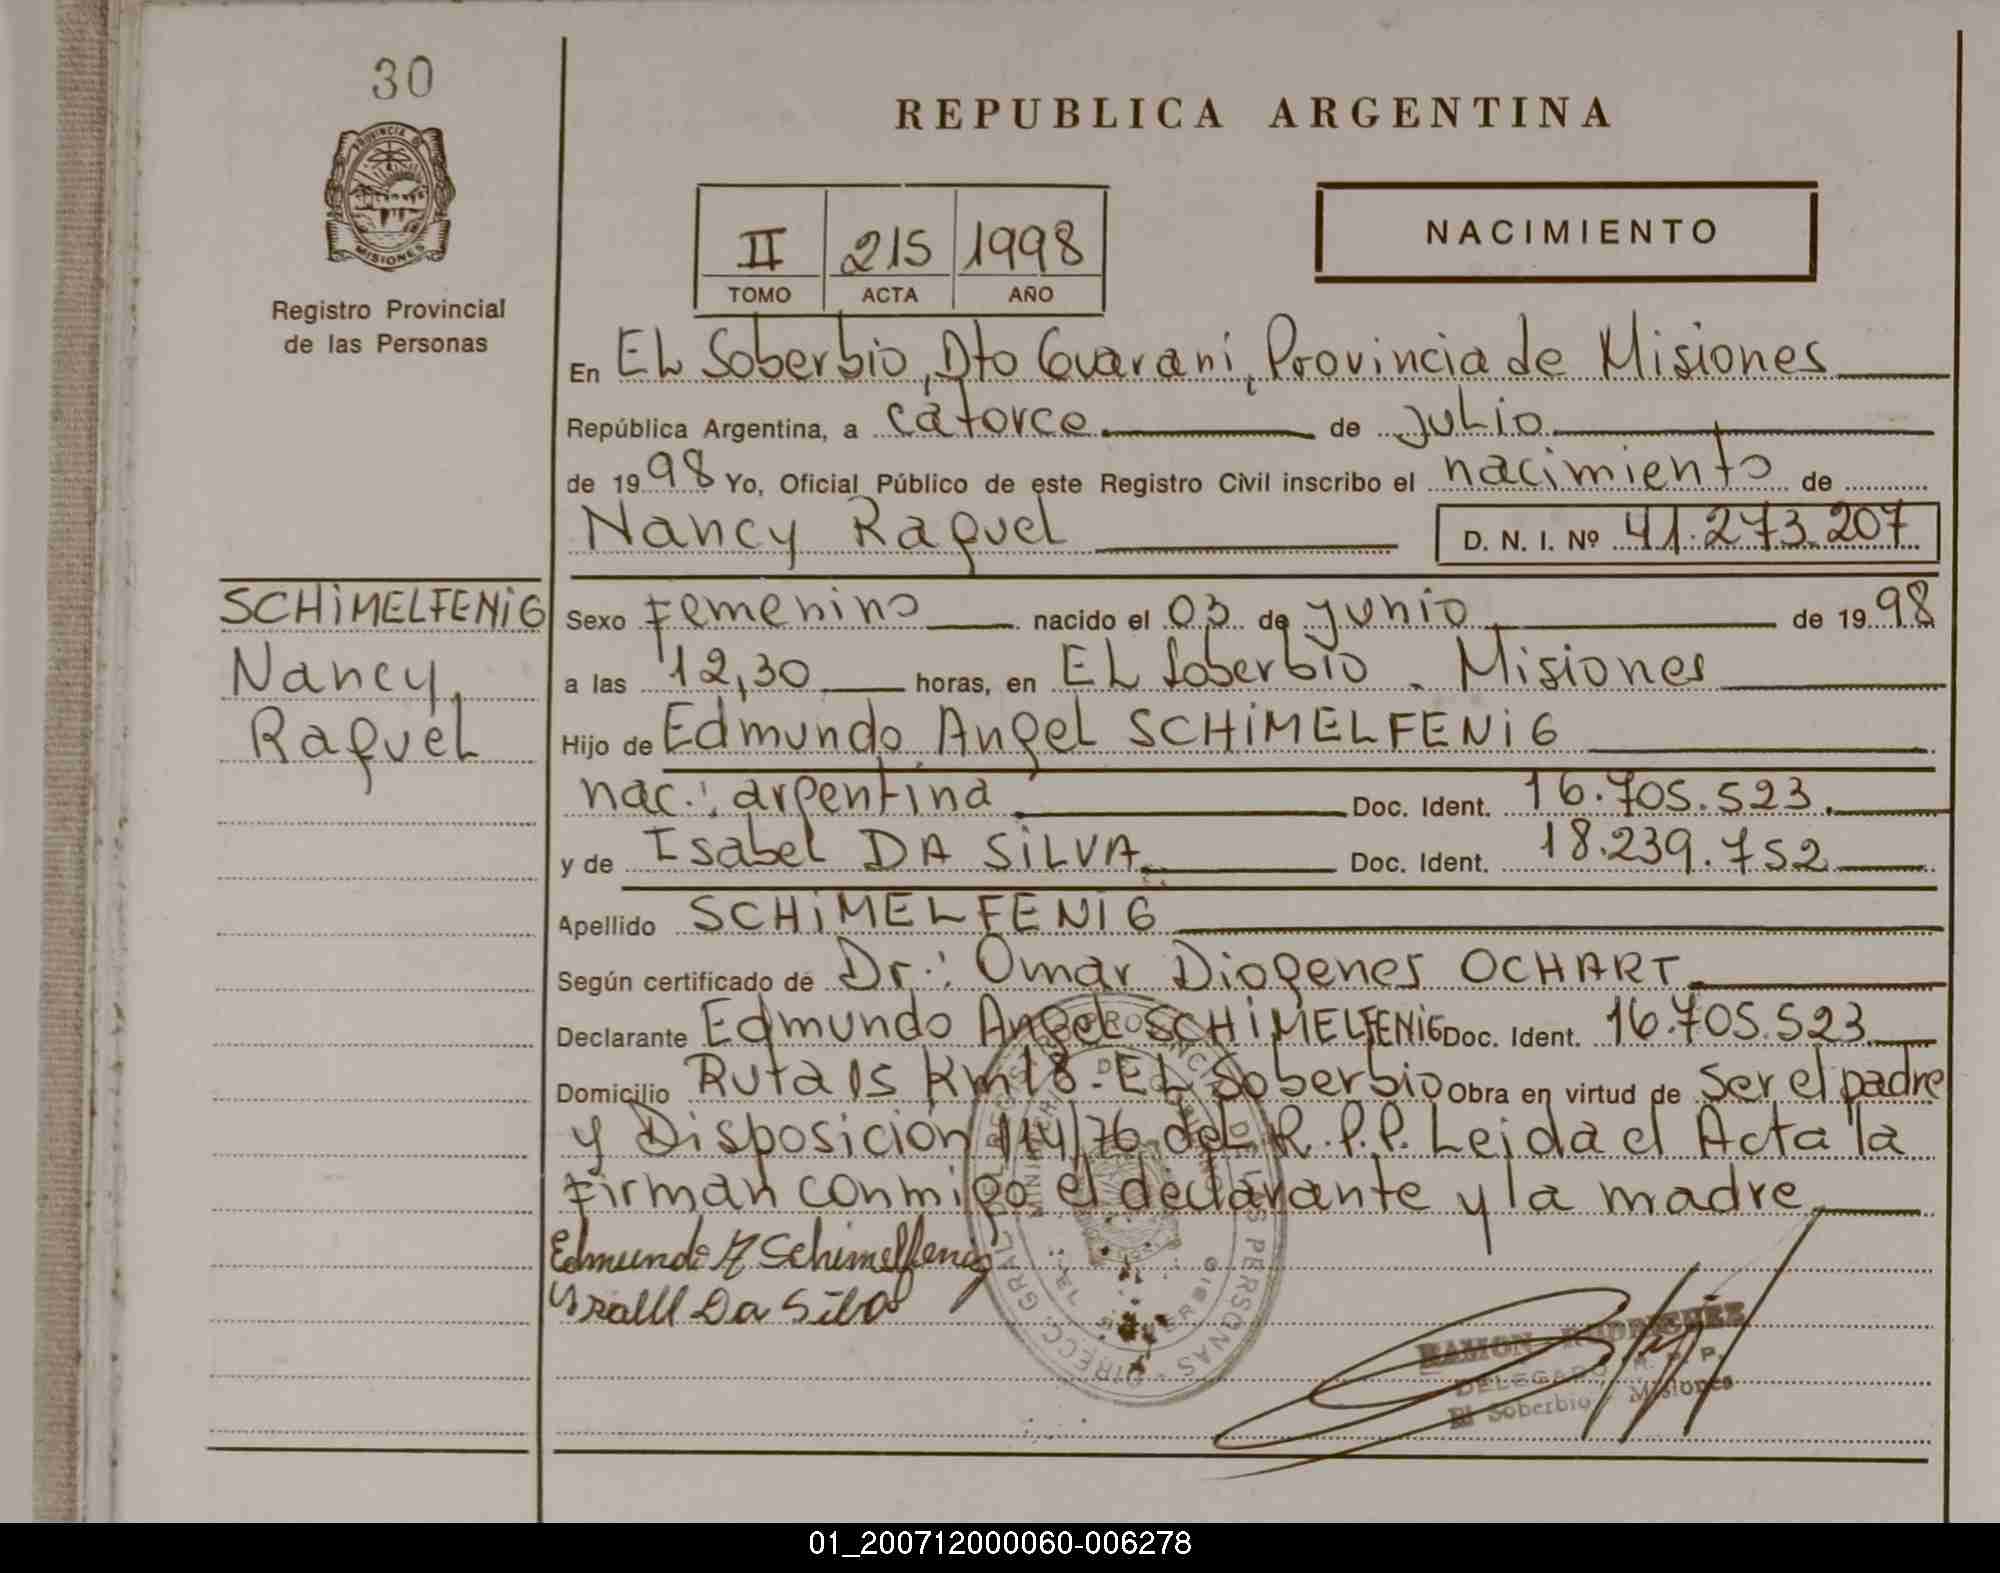 30
PROVINCIA DE
MISIONES
Registro Provincial
de las Personas
REPUBLICA ARGENTINA
II 215 1998
TOMO ACTA AÑO
NACIMIENTO
En EL Soberbio, Dto Guarani, Provincia de Misiones
República Argentina, a catorce de julio
de 1998 Yo, Oficial Público de este Registro Civil inscribo el nacimiento de
Nancy Raquel D. N. I. Nº 41.273.207
SCHiMELFENiG
Nancy
Raquel
Sexo Femenino nacido el 03 de junio de 1998
a las 12,30 horas, en EL Soberbio . Misiones
Hijo de Edmundo Angel SCHiMELFENiG
nac.: argentina Doc. Ident. 16.705.523.
y de Isabel DA SiLVA Doc. Ident. 18.239.752
Apellido SCHiMELFENiG
Según certificado de Dr.: Omar Diogenes OCHART
Declarante Edmundo Angel SCHiMELFENiG Doc. Ident. 16.705.523
Domicilio Ruta 15 Km 18 - EL Soberbio Obra en virtud de Ser el padre
y Disposición 114/76 del R.P.P. Leida el Acta la
firman conmigo el declarante y la madre
Edmundo A Schimelfenig
Da Silva
RAMON RODRIGUEZ
DELEGADO R. P. P.
El Soberbio - Misiones
01_200712000060-006278